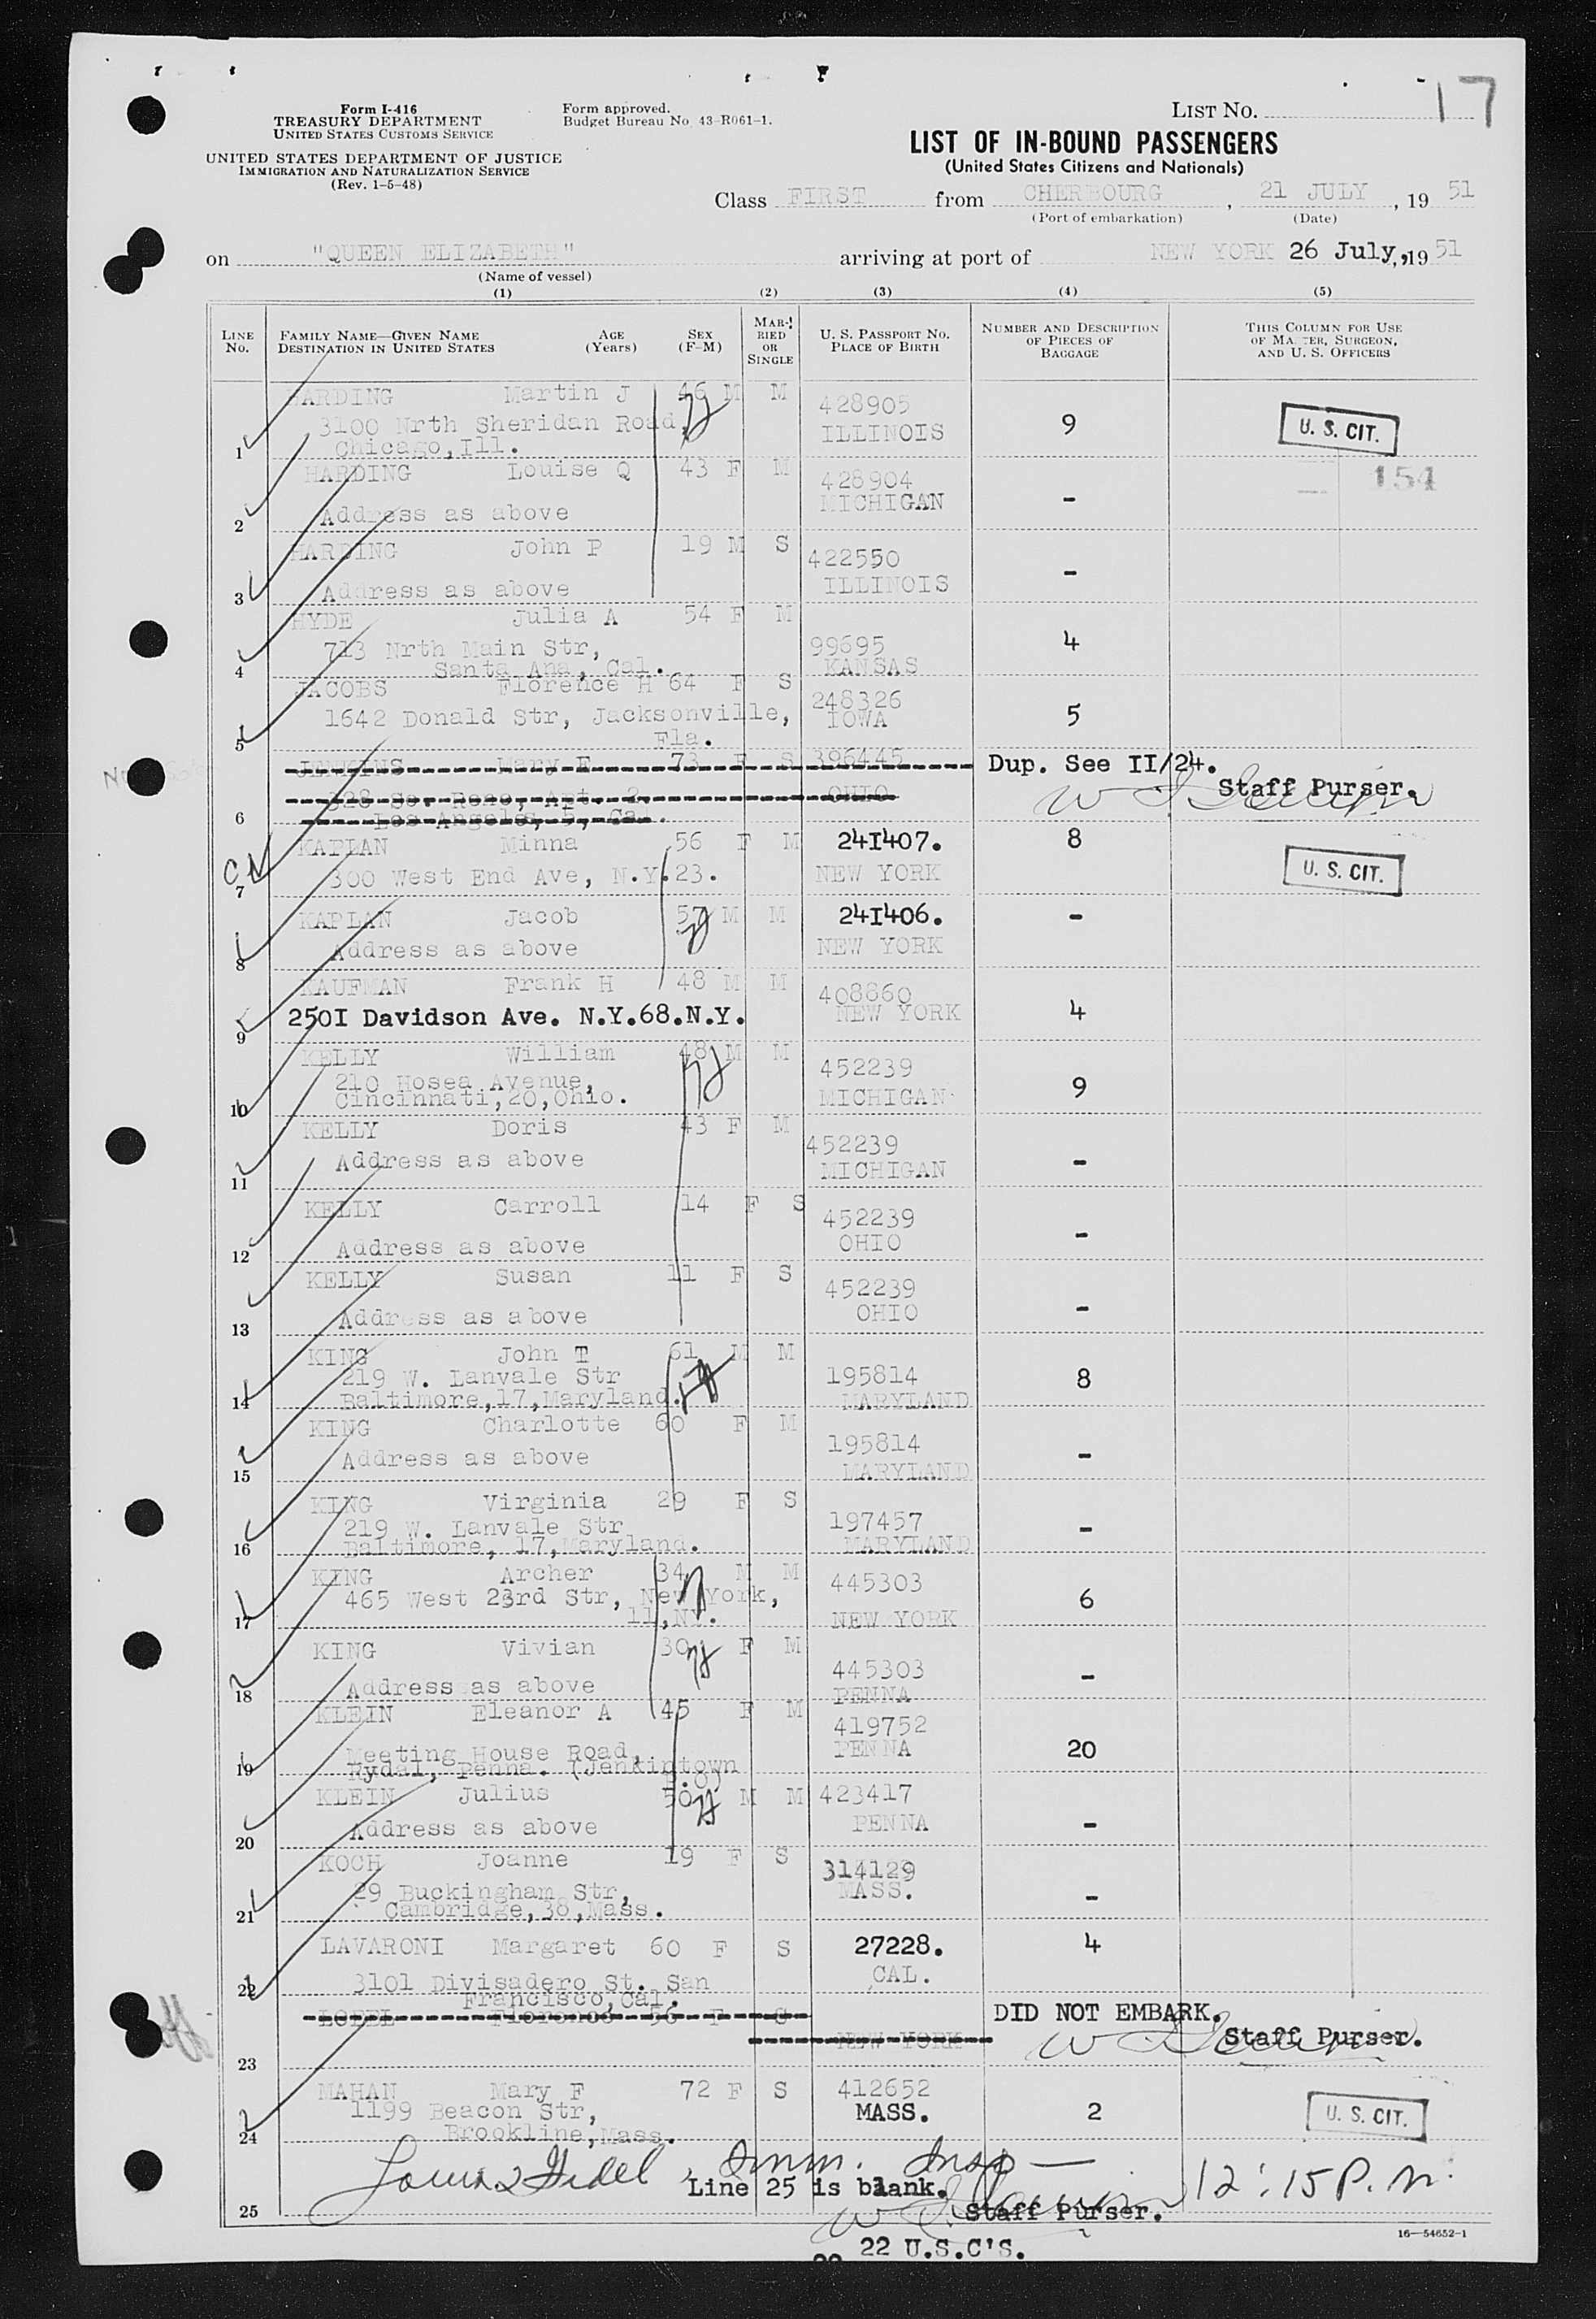 17
Form I-416
TREASURY DEPARTMENT
UNITED STATES CUSTOMS SERVICE
UNITED STATES DEPARTMENT OF JUSTICE
IMMIGRATION AND NATURALIZATION SERVICE
(Rev. 1-5-48)
Form approved.
Budget Bureau No. 43-R061-1.
LIST NO.
LIST OF IN-BOUND PASSENGERS
(United States Citizens and Nationals)
Class FIRST from CHERBOURG, 21 JULY, 19 51
(Port of embarkation) (Date)
on "QUEEN ELIZABETH" arriving at port of NEW YORK 26 July, 19 51
(Name of vessel)
(1) (2) (3) (4) (5)
LINE NO. FAMILY NAME—GIVEN NAME DESTINATION IN UNITED STATES AGE (Years) SEX (F-M) MARRIED OR SINGLE U. S. PASSPORT NO. PLACE OF BIRTH NUMBER AND DESCRIPTION OF PIECES OF BAGGAGE THIS COLUMN FOR USE OF MASTER, SURGEON, AND U. S. OFFICERS
HARDING Martin J 46 M M 428905
3100 Nrth Sheridan Road, ILLINOIS 9 U. S. CIT.
1 Chicago,Ill.
HARDING Louise Q 43 F M 428904 154
MICHIGAN -
2 Address as above
HARDING John P 19 M S 422550
3 Address as above ILLINOIS -
HYDE Julia A 54 F M
713 Nrth Main Str, 99695 4
4 Santa Ana, Cal. KANSAS
JACOBS Florence H 64 F S 248326
1642 Donald Str, Jacksonville, IOWA 5
5 Fla.
JENKINS Mary E 73 F S 396445 Dup. See II/24.
Staff Purser.
328 So. Reno, Apt. 2. OHIO
6 Los Angeles, 5, Ca.
KAPLAN Minna 56 F M 241407. 8
7 300 West End Ave, N.Y.23. NEW YORK U. S. CIT.
KAPLAN Jacob 57 M M 241406. -
8 Address as above NEW YORK
KAUFMAN Frank H 48 M M 408860
9 250I Davidson Ave. N.Y.68.N.Y. NEW YORK 4
KELLY William 48 M M 452239
210 Hosea Avenue, 9
10 Cincinnati,20,Ohio. MICHIGAN
KELLY Doris 43 F M 452239
11 Address as above MICHIGAN -
KELLY Carroll 14 F S 452239
12 Address as above OHIO -
KELLY Susan 11 F S 452239
13 Address as above OHIO -
KING John T 61 M M
219 W. Lanvale Str 195814 8
14 Baltimore,17,Maryland. MARYLAND
KING Charlotte 60 F M 195814
15 Address as above MARYLAND -
KING Virginia 29 F S 197457
219 W. Lanvale Str -
16 Baltimore, 17,Maryland. MARYLAND
KING Archer 34 M M 445303
465 West 23rd Str, New York, 6
17 11,NY. NEW YORK
KING Vivian 30 F M 445303
18 Address as above PENNA -
KLEIN Eleanor A 45 F M 419752
Meeting House Road, PENNA 20
19 Rydal, Penna. (Jenkintown
P.O)
KLEIN Julius 50 M M 423417
20 Address as above PENNA -
KOCH Joanne 19 F S 314129
29 Buckingham Str, MASS. -
21 Cambridge,38,Mass.
LAVARONI Margaret 60 F S 27228. 4
3101 Divisadero St. San CAL.
22 Francisco,Cal.
LOBEL Florence 56 F S DID NOT EMBARK.
NEW YORK Staff Purser.
23
MAHAN Mary F 72 F S 412652
1199 Beacon Str, MASS. 2 U. S. CIT.
24 Brookline,Mass.
Imm. Insp — 12:15 P.M.
Line 25 is blank.
25 Staff Purser.
16—54652-1
22 U.S.C'S.